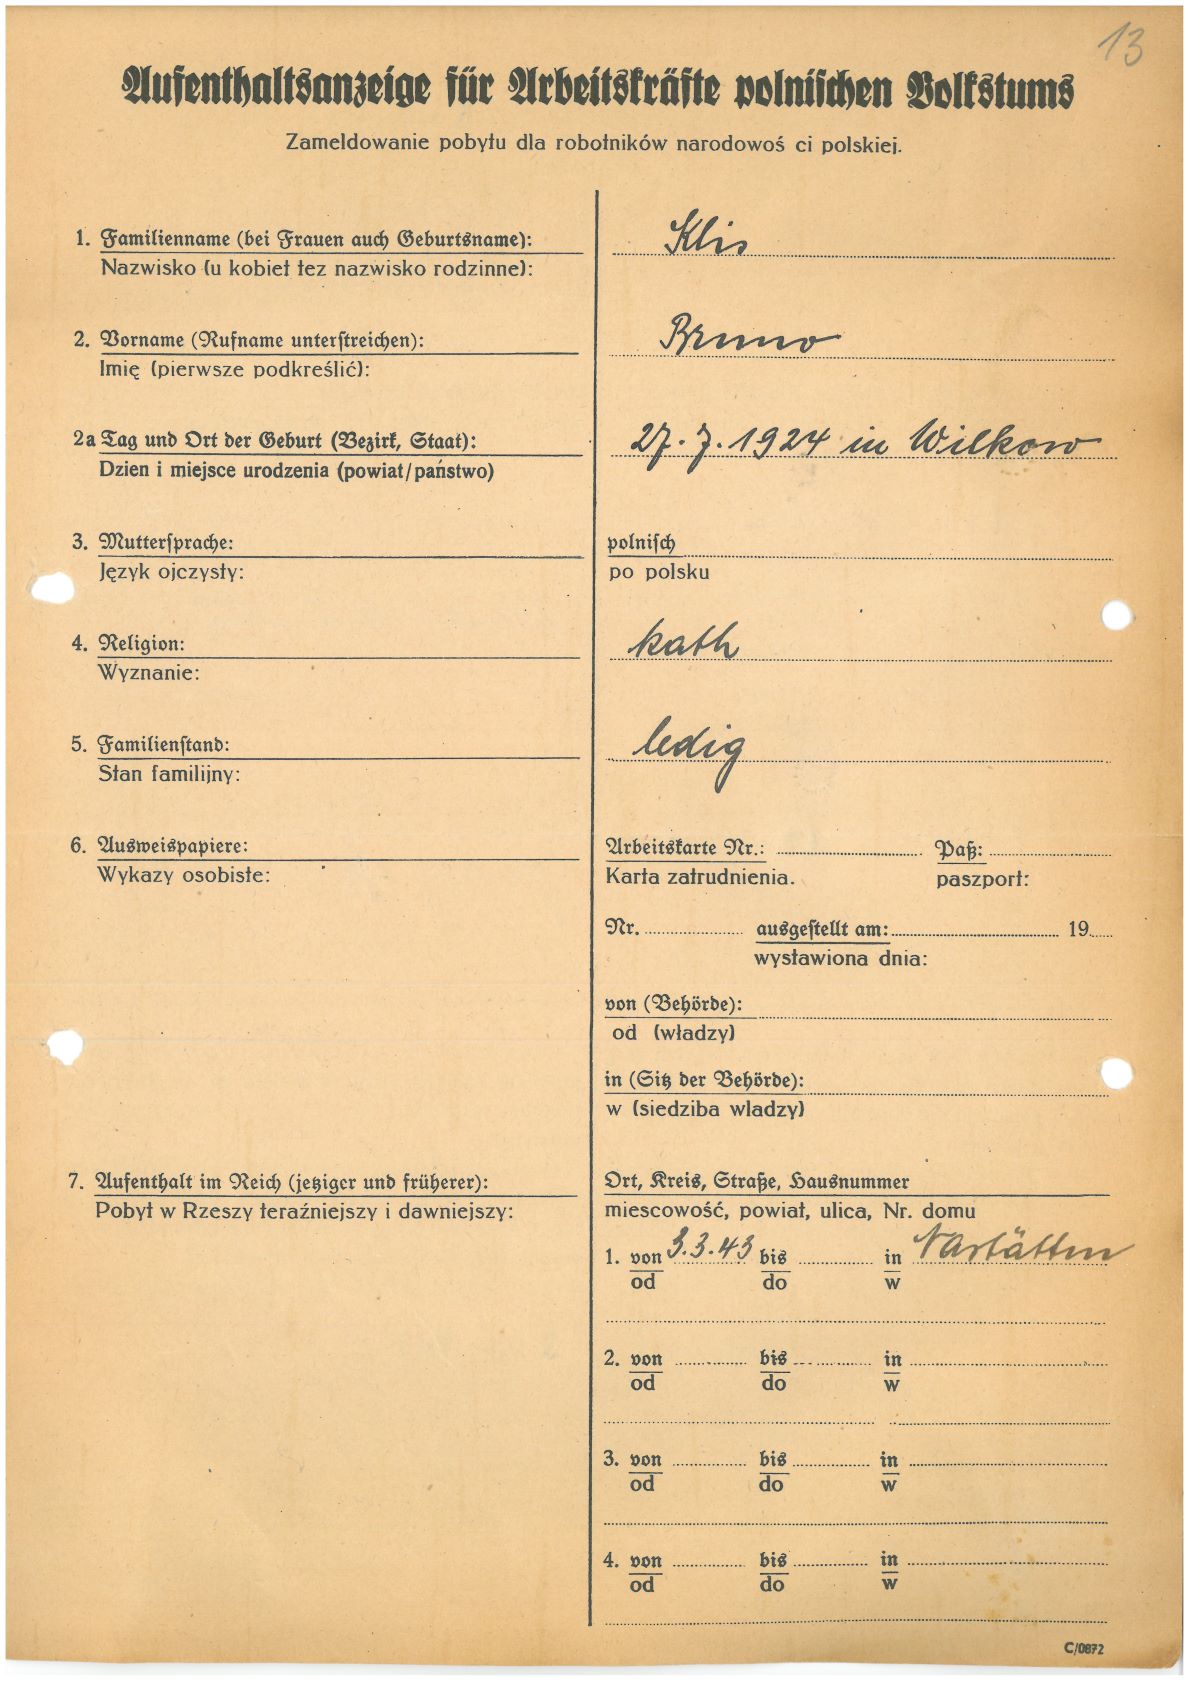 13
Aufenthaltsanzeige für Arbeitskräfte polnischen Volkstums
Zameldowanie pobytu dla robotników narodowoś ci polskiej.
1. Familienname (bei Frauen auch Geburtsname): Klis
Nazwisko (u kobiet tez nazwisko rodzinne):
2. Vorname (Rufname unterstreichen): Bruno
Imię (pierwsze podkreślić):
2a Tag und Ort der Geburt (Bezirk, Staat): 27.7.1924 in Wilkow
Dzien i miejsce urodzenia (powiat/państwo)
3. Muttersprache: polnisch
Język ojczysty: po polsku
4. Religion: kath
Wyznanie:
5. Familienstand: ledig
Stan familijny:
6. Ausweispapiere: Arbeitskarte Nr.: Paß:
Wykazy osobiste: Karta zatrudnienia. paszport:
Nr. ausgestellt am: 19
wystawiona dnia:
von (Behörde):
od (władzy)
in (Sitz der Behörde):
w (siedziba wladzy)
7. Aufenthalt im Reich (jetziger und früherer): Ort, Kreis, Straße, Hausnummer
Pobyt w Rzeszy teraźniejszy i dawniejszy: miescowość, powiat, ulica, Nr. domu
1. von 3.3.43 bis in Nastätten
od do w
2. von bis in
od do w
3. von bis in
od do w
4. von bis in
od do w
C/0872